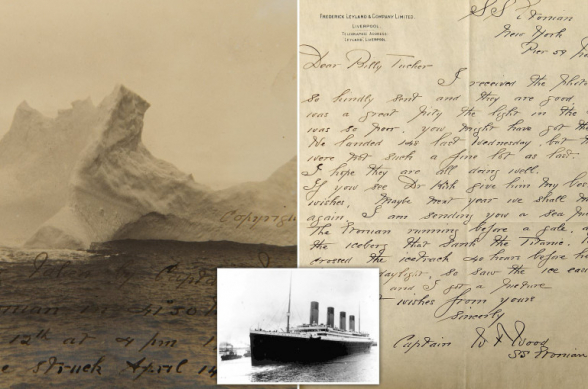 Copyright
12th at 4 pm
Struck April 14
FREDERICK LEYLAND & COMPANY LIMITED.
LIVERPOOL.
TELEGRAPHIC ADDRESS:
LEYLAND, LIVERPOOL.
SS Etonian
New York
Pier 59
Dear Billy Tucker
I received the photo
so kindly sent and they are good.
was a great pity the light in the
was so poor. you might have got the
We landed 148 last Wednesday. but
were not such a fine lot as last.
I hope they are all doing well.
If you see Dr give him my best
wishes. Maybe next year we shall m
again. I am sending you a sea pic
the Etonian running before a gale. a
the iceberg that sank the Titanic.
crossed the icetrack 40 hours before he
daylight. so saw the ice eas
and I got a picture
wishes from yours
Sincerely
Captain W F Wood
SS Etonian